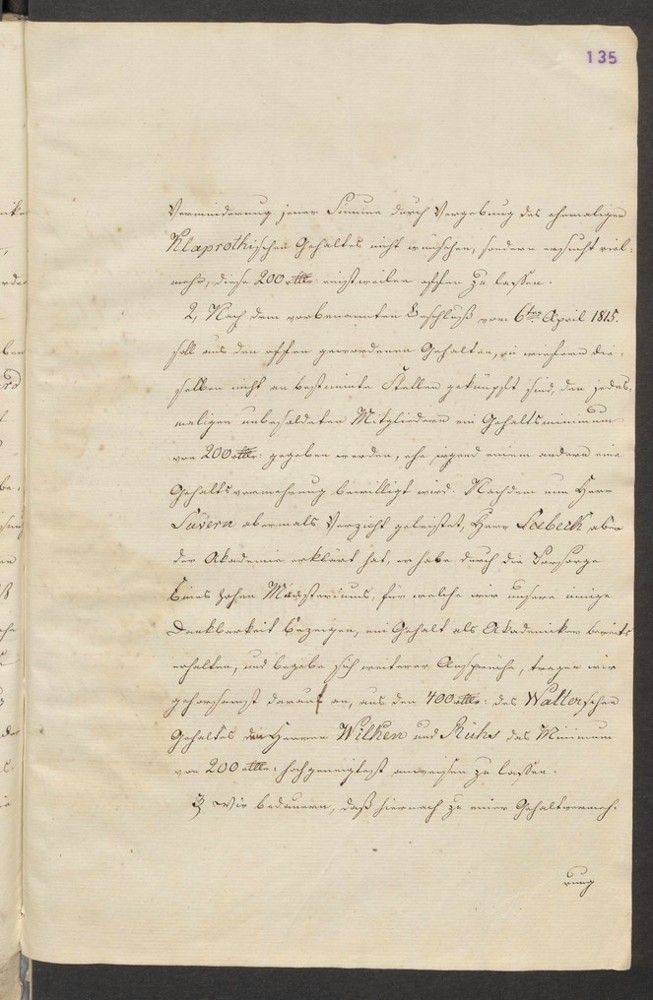 135
Verminderung jener Summe durch Vergebung des ehemaligen
Klaprothischen Gehaltes nicht wünschen, sondern ersucht viel-
mehr, diese 200 rtlr einstweilen offen zu lassen.
2, Nach dem vorbenannten Beschluß vom 6ten April 1815.
soll aus den offen gewordenen Gehalten, in wiefern die-
selben nicht an bestimmte Stellen geknüpft sind, den jedes-
maligen unbesoldeten Mitgliedern ein Gehaltsminimum
von 200 rtlr: gegeben werden, ehe irgend einem andern eine
Gehaltsvermehrung bewilligt wird. Nachdem nun Herr
Süvern abermals Verzicht geleistet, Herr Seebeck aber
der Akademie erklärt hat, er habe durch die Vorsorge
Eines hohen Ministeriums, für welche wir unsere innige
Dankbarkeit bezeigen, ein Gehalt als Akademiker bereits
erhalten, und begebe sich weiterer Ansprüche, tragen wir
gehorsamst darauf an, aus den 400 rtlr: des Walterschen
Gehaltes den Herren Wilken und Rühs das Minimum
von 200 rtlr: hochgeneigtest anweisen zu lassen.
3, Wir bedauern, daß hiernach zu einer Gehaltvermeh-
rung